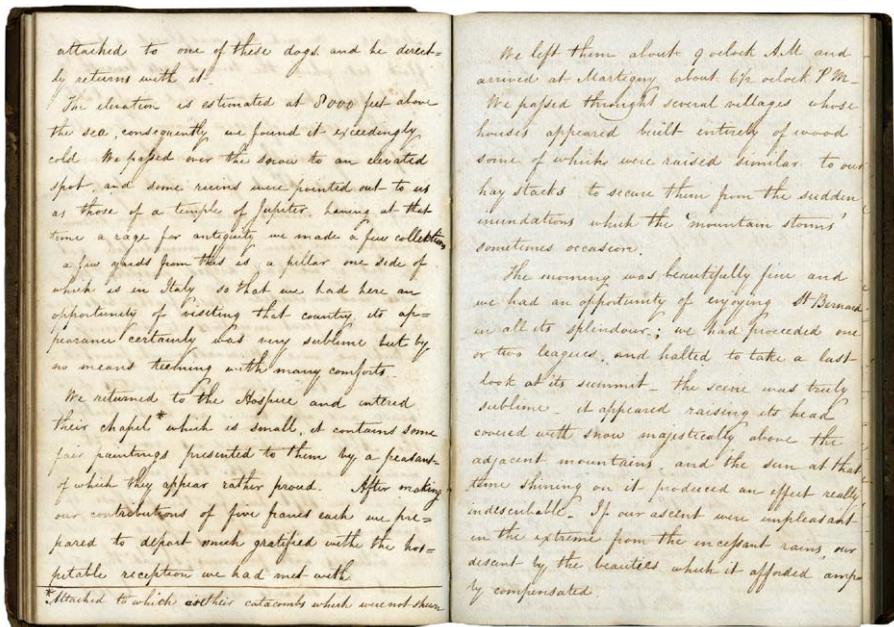 attached to one of these dogs and he direct=
ly returns with it-
The elevation is estimated at 8000 feet above
the sea, consequently we found it exceedingly
cold We passed over the snow to an elevated
spot, and some ruins were pointed out to us
as those of a temple of Jupiter having at that
time a rage for antiquity we made a few collections
a few yards from this is a pillar one side of
which is in Italy so that we had here an
opportunity of visiting that country, its ap=
pearance certainly was very sublime but by
no means teeming with many comforts.
We returned to the Hospice and entered
their chapel* which is small, it contains some
fair paintings presented to them by a peasant-
of which they appear rather proud. After making
our contributions of five francs each we pre=
pared to depart much gratified with the hos=
pitable reception we had met with
*Attached to which are their catacombs which were not shewn
We left them about 9 oclock A.M and
arrived at Martigny about 6½ oclock P.M-
We passed throught several villages whose
houses appeared built entirely of wood
some of which were raised similar to our
hay stacks to secure them from the sudden
inundations which the 'mountain storms'
sometimes occasion.
The morning was beautifully fine and
we had an opportunity of enjoying St Bernard
in all its splendour; we had proceeded one
or two leagues, and halted to take a last
look at its summit - the scene was truly
sublime - it appeared raising its head
covered with snow majestically above the
adjacent mountains, and the sun at that
time shining on it produced an effect really
indescribable. If our ascent were unpleasant
in the extreme from the incessant rains, our
descent by the beauties which it afforded amp
ly compensated